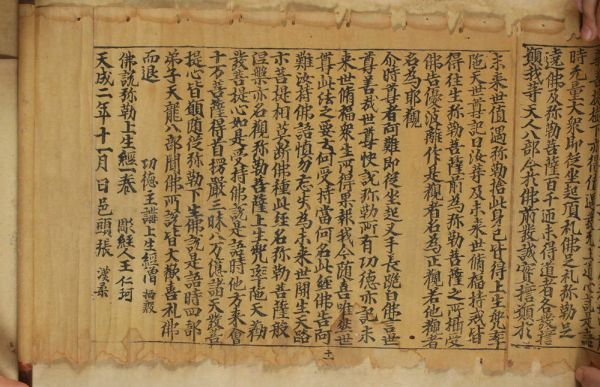 時无量大衆即從坐起頂礼佛足礼弥勒足
遶佛及弥勒菩薩百千匝未得道者各發誓
願我等天人八部今於佛前發誠實誓願於
未來世值遇弥勒捨此身已皆得上生兜率
陁天世尊記曰汝等及未來世脩福持戒皆
得往生弥勒菩薩前為弥勒菩薩之所攝受
佛告優波離作是觀者名為正觀若他觀者
名為耶觀
尒時尊者阿難即從坐起叉手長跪白佛言世
尊善哉世尊快說弥勒所有功德亦記未
來世脩福衆生所得果報我今隨喜唯然世
尊此法之要云何受持當何名此経佛告阿
難汝持佛語慎勿忘失為未來世開生天路
示菩提相莫斷佛種此経名弥勒菩薩般
涅槃亦名觀弥勒菩薩上生兜率陁天勸
發菩提心如是受持佛說是語時他方來會
十万菩薩得首楞嚴三昧八万億諸天發菩
提心皆願隨從弥勒下生佛說是語時四部
弟子天龍八部聞佛所說皆大歡喜礼佛
而退
功德主講上生経僧
佛說弥勒上生経一卷 彫経人王仁珂
天成二年十一月日邑頭張漢柔
十一